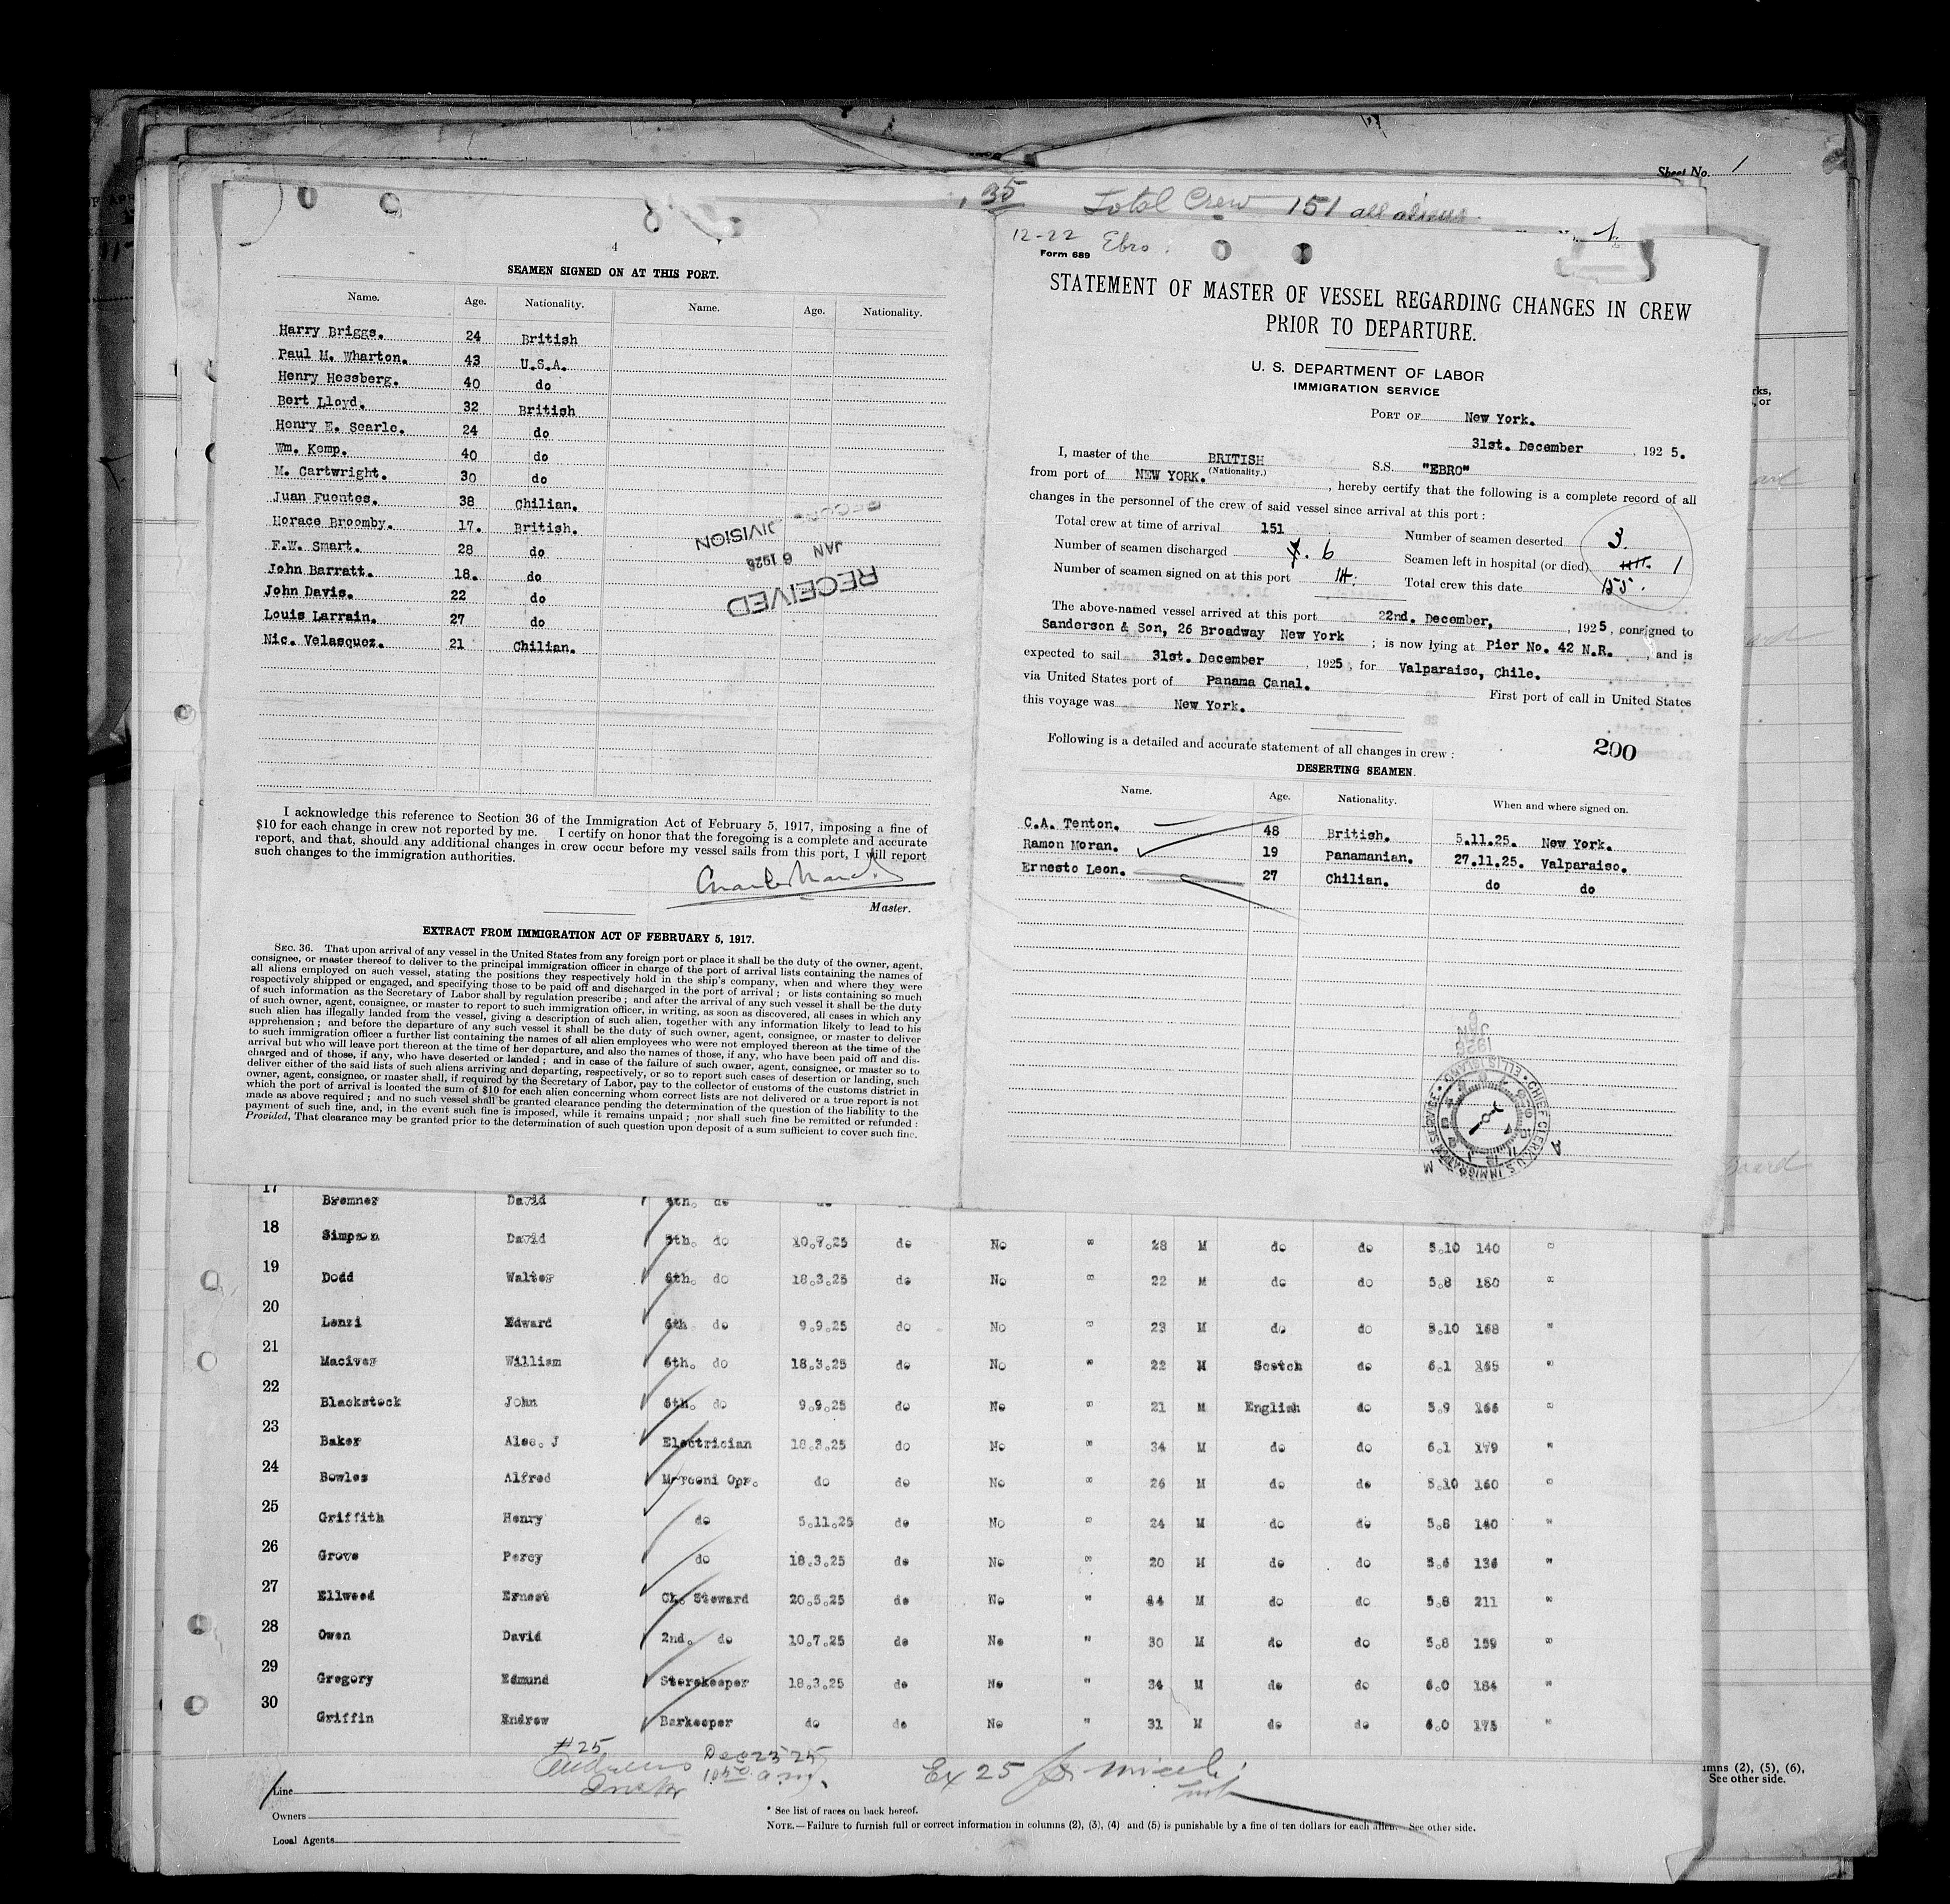 Sheet No. 1
35 Total Crew 151 all aliens
4
SEAMEN SIGNED ON AT THIS PORT.
Name. Age. Nationality. Name. Age. Nationality.
Harry Briggs. 24 British
Paul M. Wharton. 43 U.S.A.
Henry Hessberg. 40 do
Bert Lloyd. 32 British
Henry E. Searle. 24 do
Wm. Kemp. 40 do
M. Cartwright. 30 do
Juan Fuentes. 38 Chilian.
Horace Broomby. 17. British.
F.W. Smart. 28 do
John Barratt. 18. do
John Davis. 22 do
Louis Larrain. 27 do
Nic. Velasquez. 21 Chilian.
RECEIVED
JAN 6 1926
DIVISION
I acknowledge this reference to Section 36 of the Immigration Act of February 5, 1917, imposing a fine of
$10 for each change in crew not reported by me. I certify on honor that the foregoing is a complete and accurate
report, and that, should any additional changes in crew occur before my vessel sails from this port, I will report
such changes to the immigration authorities.
Master.
EXTRACT FROM IMMIGRATION ACT OF FEBRUARY 5, 1917.
SEC. 36. That upon arrival of any vessel in the United States from any foreign port or place it shall be the duty of the owner, agent,
consignee, or master thereof to deliver to the principal immigration officer in charge of the port of arrival lists containing the names of
all aliens employed on such vessel, stating the positions they respectively hold in the ship's company, when and where they were
respectively shipped or engaged, and specifying those to be paid off and discharged in the port of arrival; or lists containing so much
of such information as the Secretary of Labor shall by regulation prescribe; and after the arrival of any such vessel it shall be the duty
of such owner, agent, consignee, or master to report to such immigration officer, in writing, as soon as discovered, all cases in which any
such alien has illegally landed from the vessel, giving a description of such alien, together with any information likely to lead to his
apprehension; and before the departure of any such vessel it shall be the duty of such owner, agent, consignee, or master to deliver
to such immigration officer a further list containing the names of all alien employees who were not employed thereon at the time of the
arrival but who will leave port thereon at the time of her departure, and also the names of those, if any, who have been paid off and dis-
charged and of those, if any, who have deserted or landed; and in case of the failure of such owner, agent, consignee, or master so to
deliver either of the said lists of such aliens arriving and departing, respectively, or so to report such cases of desertion or landing, such
owner, agent, consignee, or master shall, if required by the Secretary of Labor, pay to the collector of customs of the customs district in
which the port of arrival is located the sum of $10 for each alien concerning whom correct lists are not delivered or a true report is not
made as above required; and no such vessel shall be granted clearance pending the determination of the question of the liability to the
payment of such fine, and, in the event such fine is imposed, while it remains unpaid; nor shall such fine be remitted or refunded:
Provided, That clearance may be granted prior to the determination of such question upon deposit of a sum sufficient to cover such fine.
12-22 Ebro.
Form 689
STATEMENT OF MASTER OF VESSEL REGARDING CHANGES IN CREW
PRIOR TO DEPARTURE.
U. S. DEPARTMENT OF LABOR
IMMIGRATION SERVICE
PORT OF New York.
31st. December, 1925.
I, master of the BRITISH S.S. "EBRO"
(Nationality.)
from port of NEW YORK., hereby certify that the following is a complete record of all
changes in the personnel of the crew of said vessel since arrival at this port:
Total crew at time of arrival 151 Number of seamen deserted 3.
Number of seamen discharged 6 Seamen left in hospital (or died) 1
Number of seamen signed on at this port 14: Total crew this date 155.
The above-named vessel arrived at this port 22nd. December, 1925, consigned to
Sanderson & Son, 26 Broadway New York; is now lying at Pier No. 42 N.R., and is
expected to sail 31st. December, 1925, for Valparaiso, Chile.
via United States port of Panama Canal. First port of call in United States
this voyage was New York.
Following is a detailed and accurate statement of all changes in crew:
200
DESERTING SEAMEN.
Name. Age. Nationality. When and where signed on.
C.A. Tenton. 48 British. 5.11.25. New York.
Ramon Moran. 19 Panamanian. 27.11.25. Valparaiso.
Ernesto Leon. 27 Chilian. do do
JAN 6 1926
CHIEF CLERK U.S. IMMIGRATION SERVICE ELLIS ISLAND
A M
17 Bremner David 4th. do do
18 Simpson David 5th. do 10.7.25 do No " 28 M do do 5.10 140 "
19 Dodd Walter 6th. do 18.3.25 do No " 22 M do do 5.8 180 "
20 Lenzi Edward 6th do 9.9.25 do No " 23 M do do 5.10 168 "
21 Maciver William 6th. do 18.3.25 do No " 22 M Scotch do 6.1 165 "
22 Blackstock John 6th. do 9.9.25 do No " 21 M English do 5.9 166 "
23 Baker Alec. J Electrician 18.3.25 do No " 34 M do do 6.1 179 "
24 Bowles Alfred Marconi Opr. do do No " 26 M do do 5.10 160 "
25 Griffith Henry do 5.11.25 do No " 24 M do do 5.8 140 "
26 Grove Percy do 18.3.25 do No " 20 M do do 5.6 136 "
27 Ellwood Ernest Ch. Steward 20.5.25 do No " 44 M do do 5.8 211 "
28 Owen David 2nd. do 10.7.25 do No " 30 M do do 5.8 159 "
29 Gregory Edmund Storekeeper 18.3.25 do No " 34 M do do 6.0 184 "
30 Griffin Andrew Barkeeper do do No " 31 M do do 6.0 175 "
#25 Dec 23 25
Line
Owners
Local Agents
Ex 25
* See list of races on back hereof.
NOTE.—Failure to furnish full or correct information in columns (2), (3), (4) and (5) is punishable by a fine of ten dollars for each alien. See other side.
umns (2), (5), (6),
See other side.